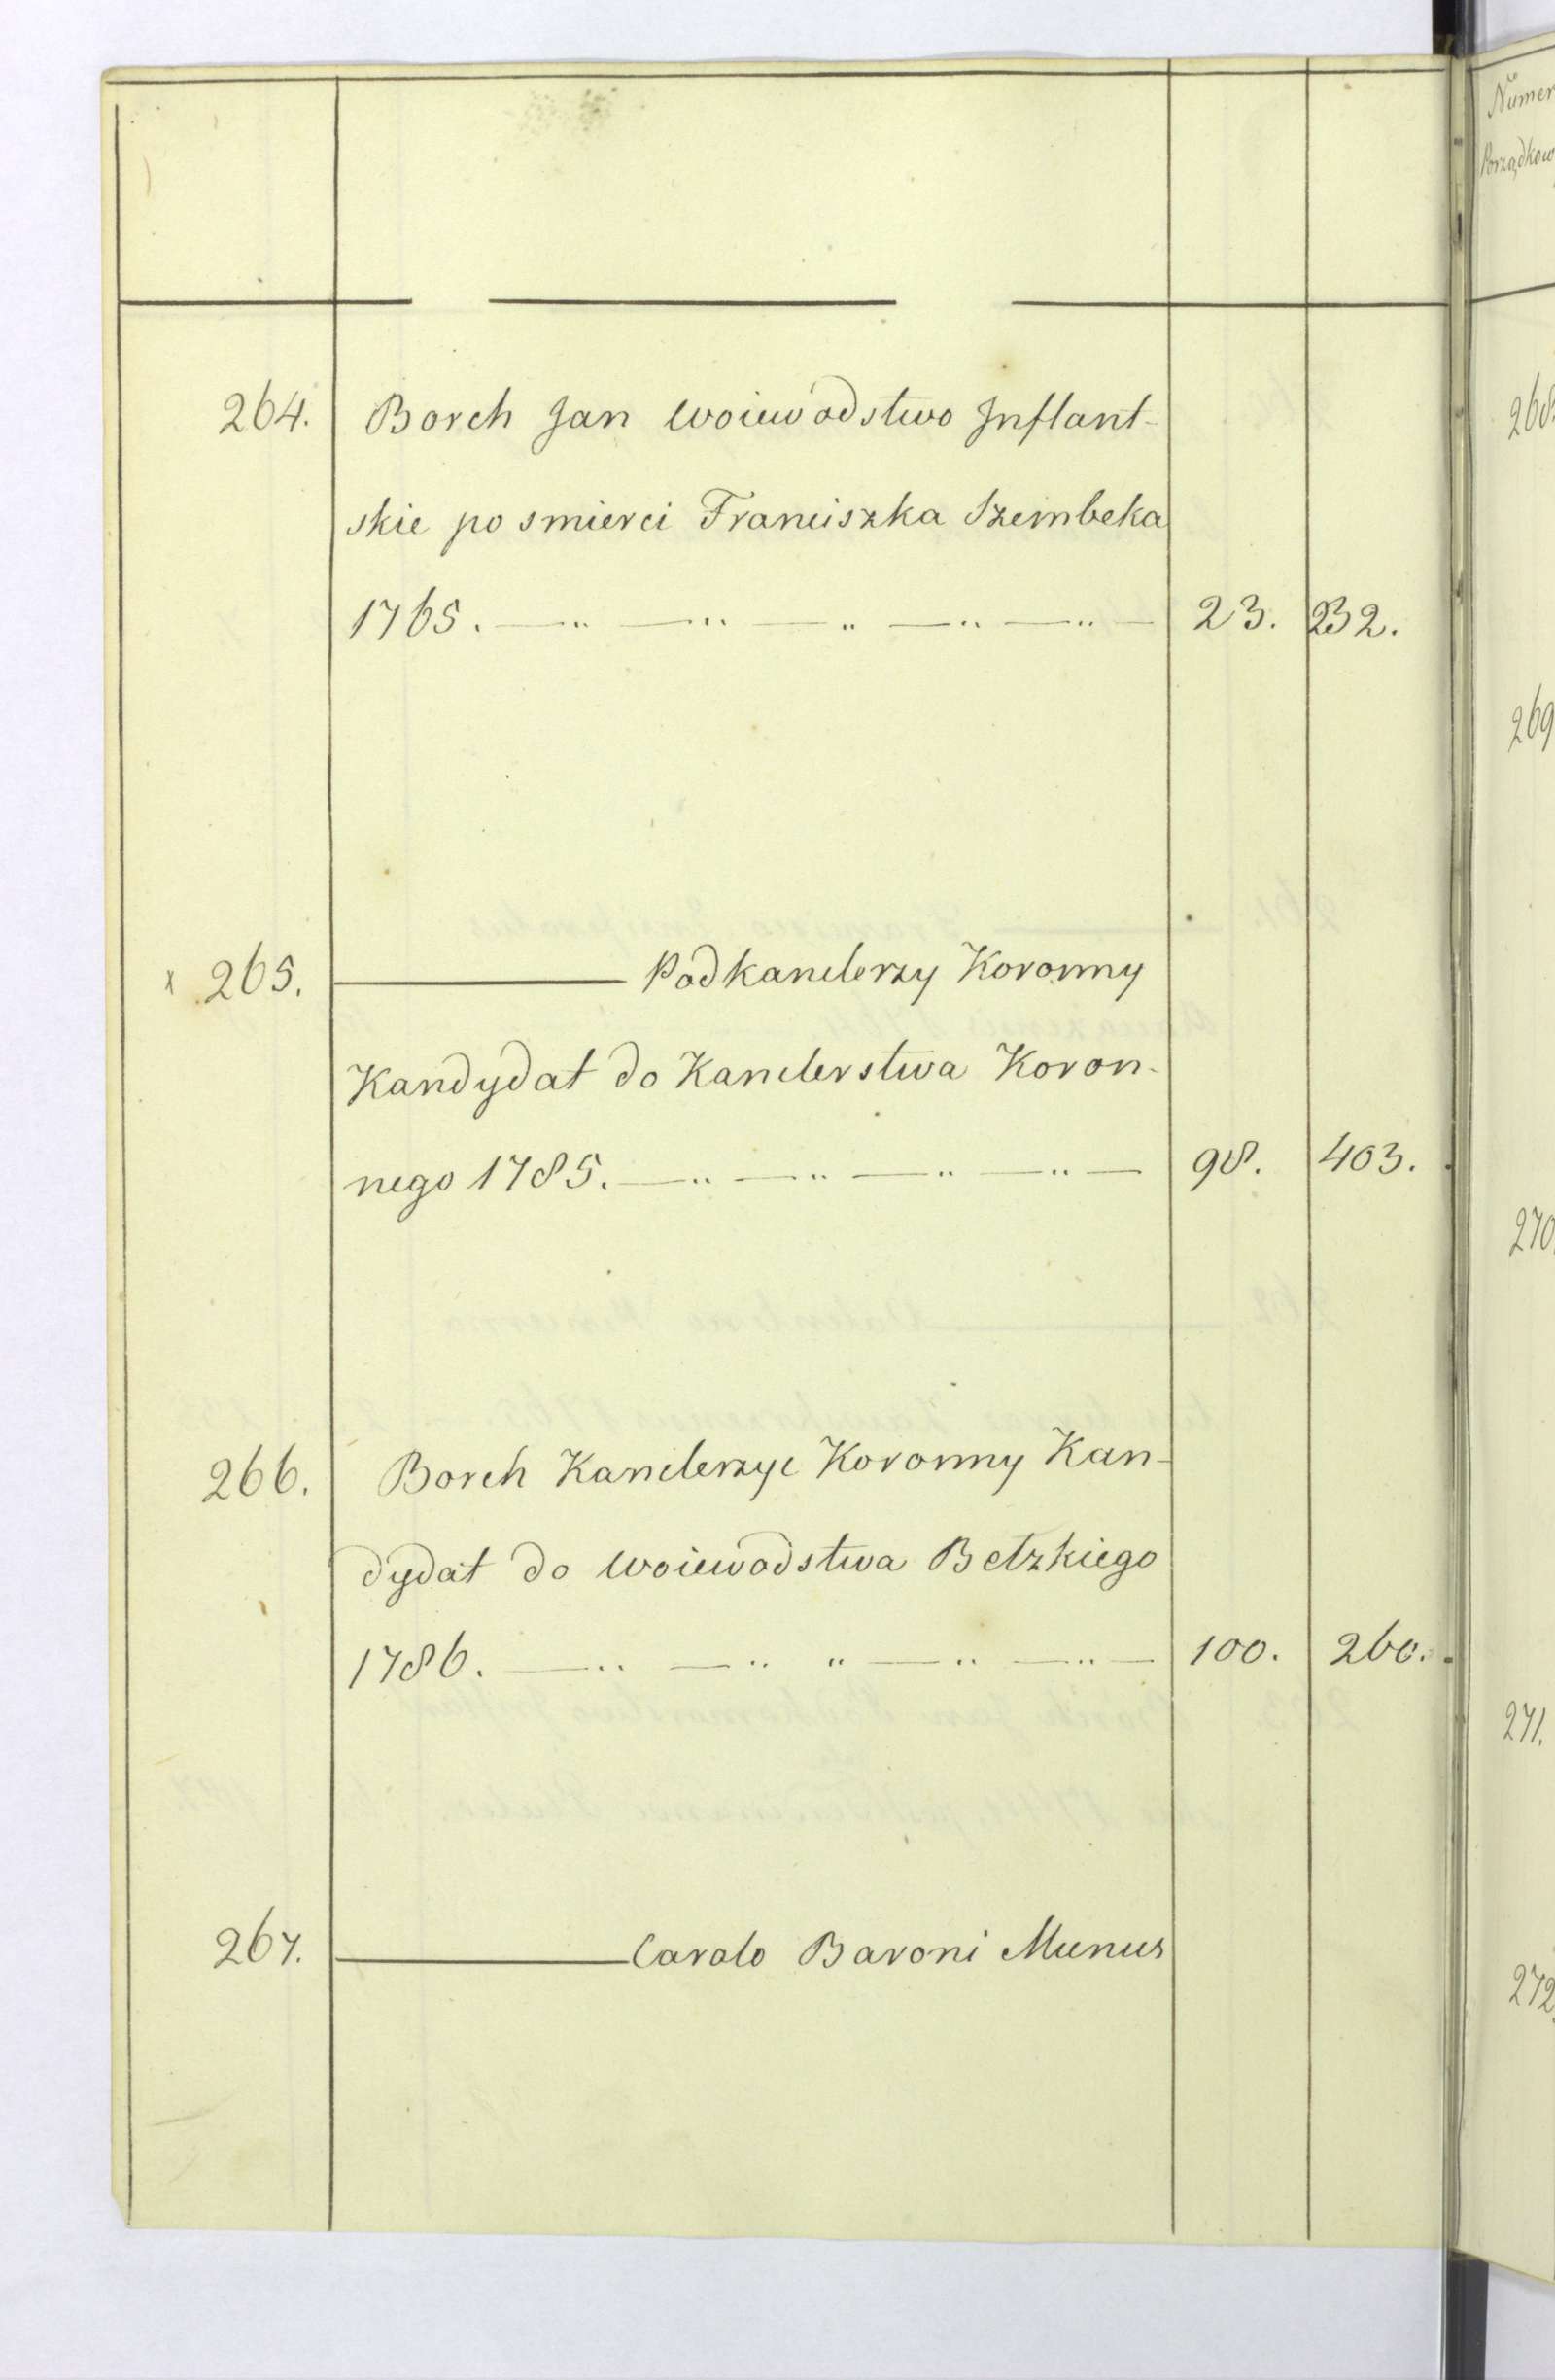 264. Borch Jan Woiewodstwo Inflant-
skie po smierci Franciszka Szembeka
1765. — „ — „ — „ — „ — „ — 23. 232.
x 265. ——— Podkanclerzy Koronny
Kandydat do Kanclerstwa Koron-
nego 1785. — „ — „ — „ — „ — 98. 403.
266. Borch Kanclerzyc Koronny Kan-
dydat do Woiewodstwa Bełzkiego
1786. — „ — „ „ — „ — „ — 100. 260.
267. ——— Carolo Baroni Munus
Numer
Porządkow
268
269
270
271.
272